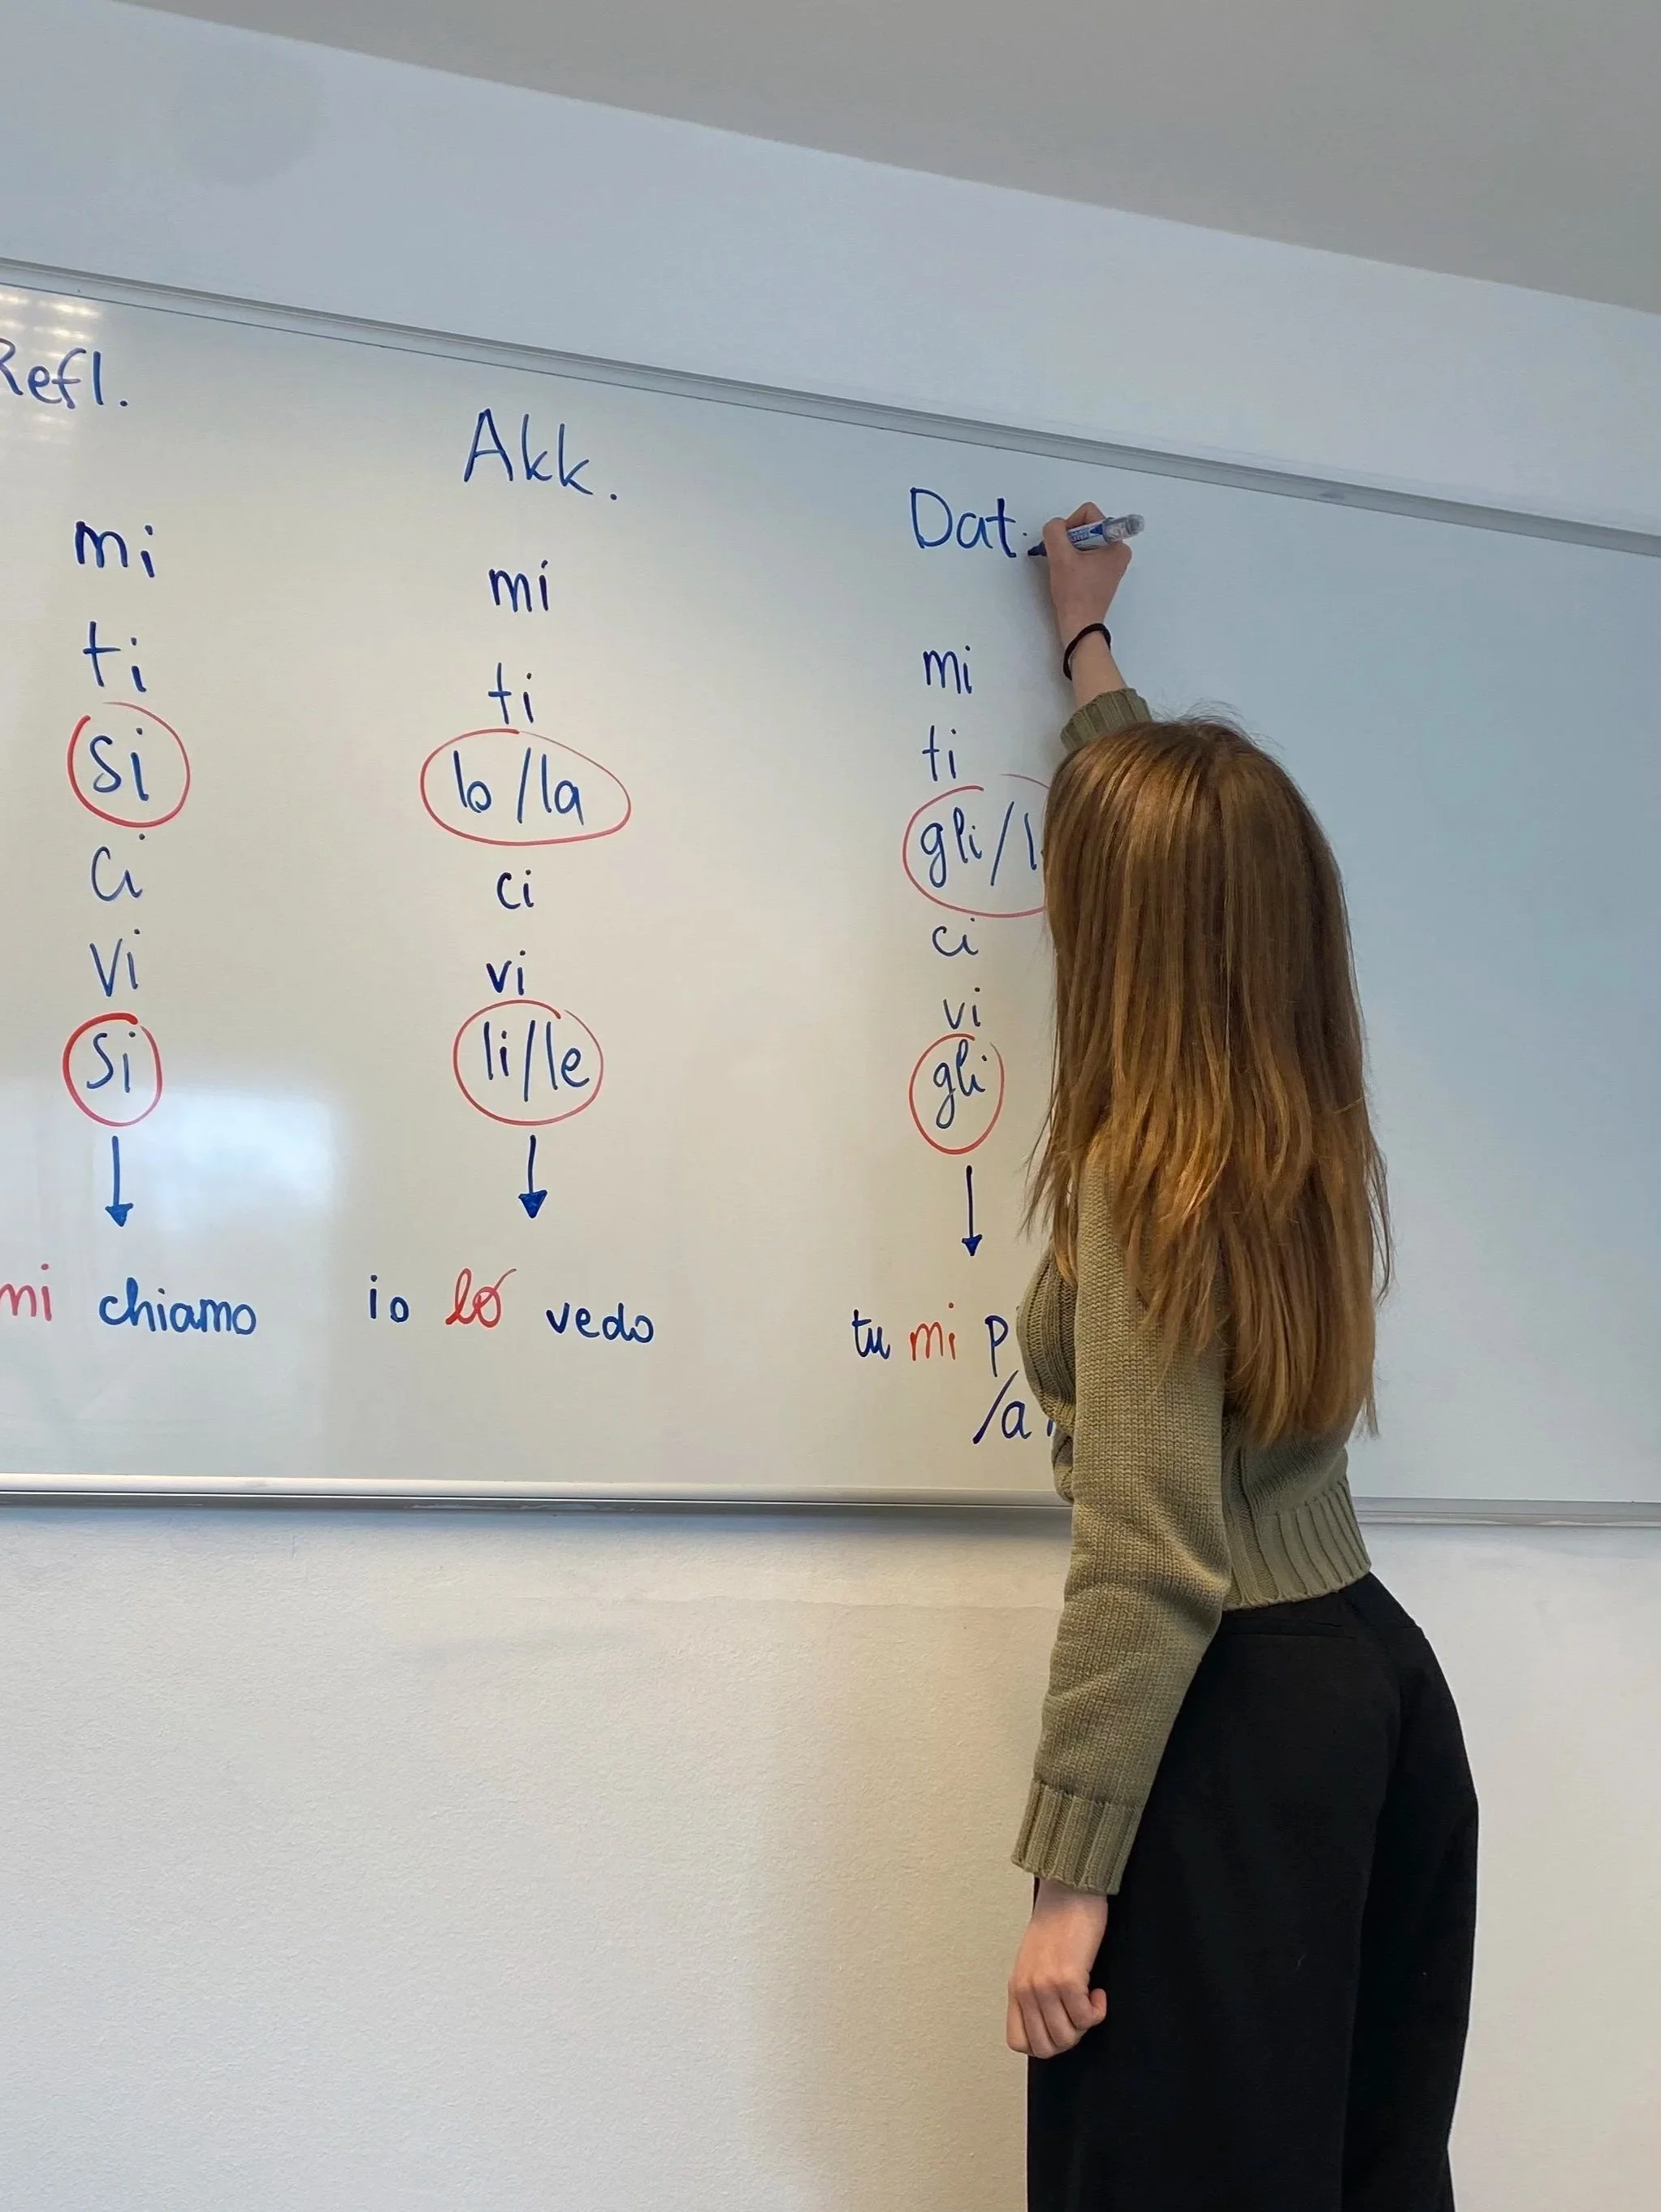 Refl.
mi
ti
si
ci
vi
si
mi chiamo
Akk.
mi
ti
lo/la
ci
vi
li/le
io lo vedo
Dat.
mi
ti
gli/
ci
vi
gli
tu mi